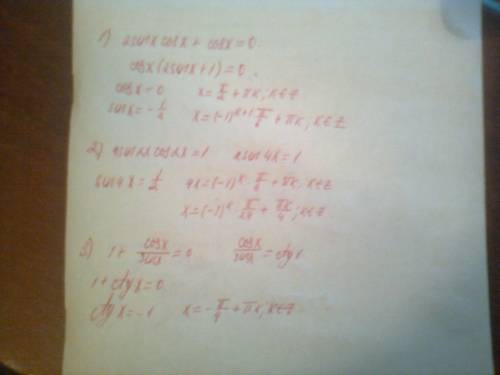 1) 2sinx cosx + cosx = 0
cosx (2sinx + 1) = 0
cosx = 0    x = π/2 + πk, k∈Z
sinx = -1/2    x = (-1)^(k+1) π/6 + πk, k∈Z
2) 4sin2x cos2x = 1    2sin4x = 1
sin4x = 1/2    4x = (-1)^k · π/6 + πk, k∈Z
x = (-1)^k · π/24 + πk/4, k∈Z
3) 1 + cosx/sinx = 0    cosx/sinx = ctg
1 + ctgx = 0
ctgx = -1    x = -π/4 + πk, k∈Z